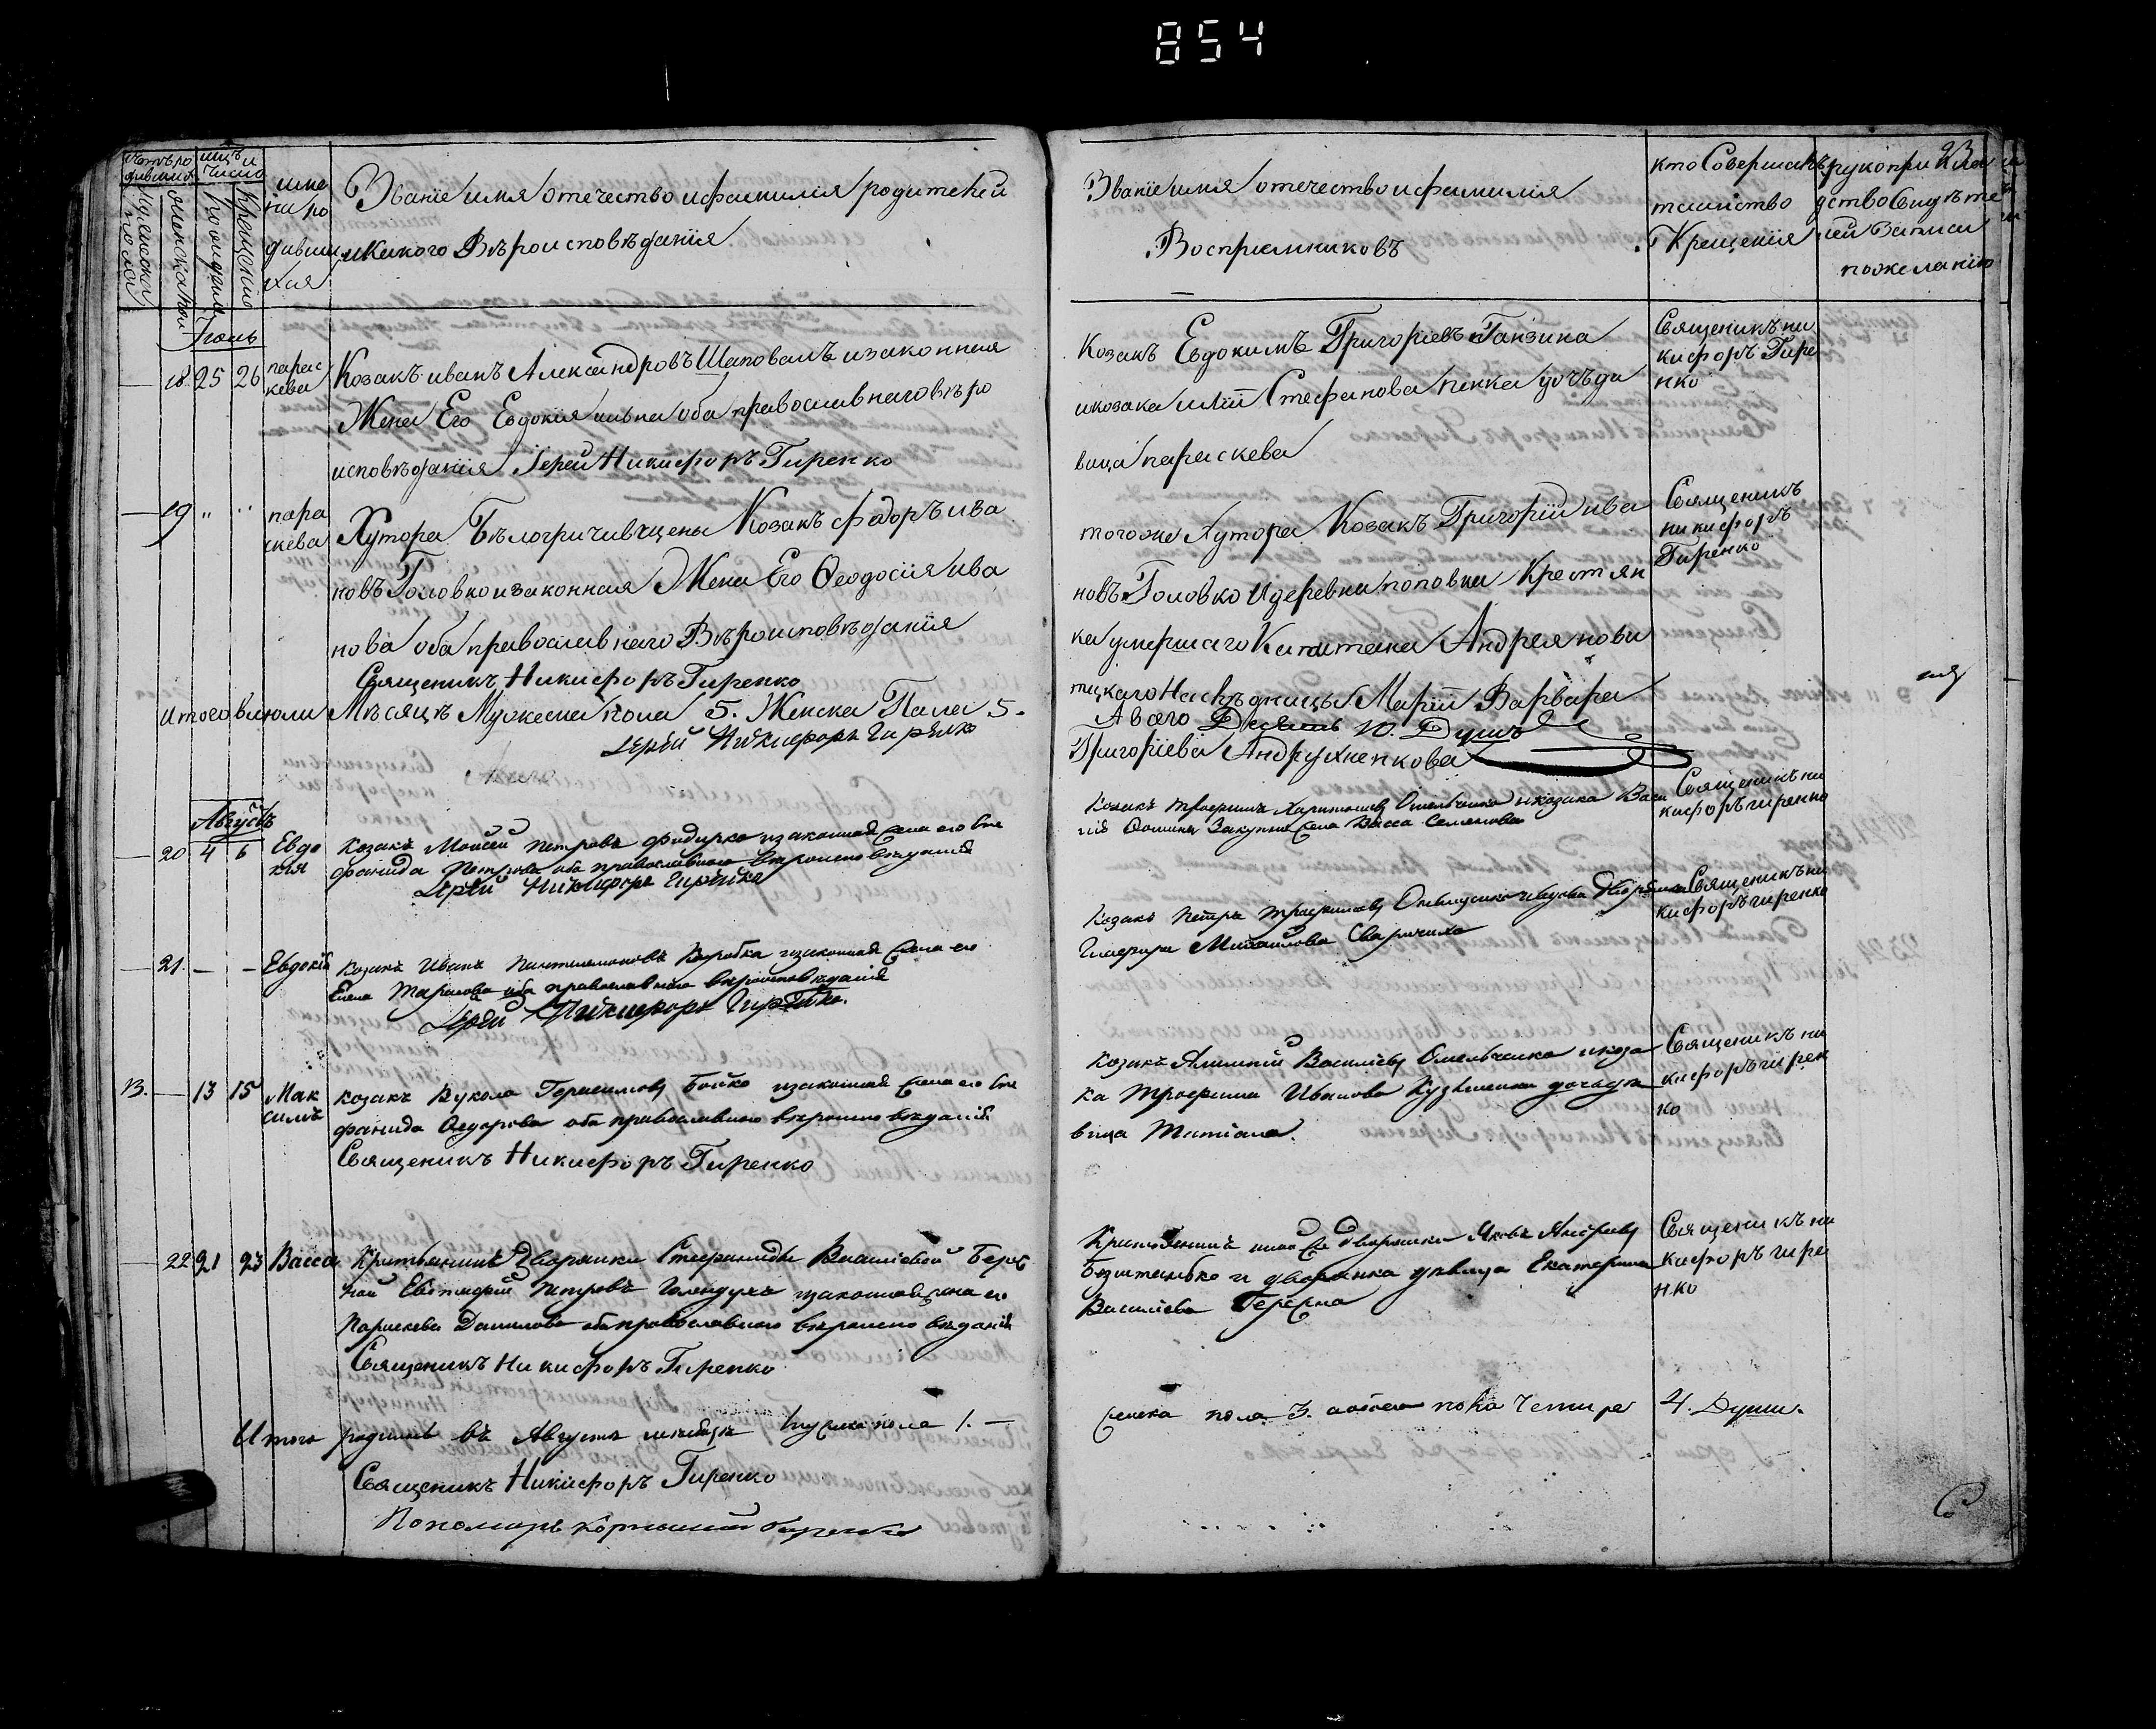 854
93
имена родившихся
Званіе имя отечество и фамилія родителей
и какого Вѣроисповѣданія
Званіе имя отечество и фамилія
Воспріемниковъ
кто Совершалъ
таинство
Крещенія
рукоприкла
дство Свидѣте
лей Записи
по желанію
Іюль
18 25 26 парас
кева
Козакъ иванъ Александровъ Шаповалъ и законная
Жена Его Евдокія оба православнаго вѣро
исповѣданія Іерей Никифоръ Гиренко
Козакъ Евдокимъ Григоріевъ Ганзина
и козака Стефанова дочъ дѣ
вица параскева
Священикъ ни
кифоръ Гире
нко
19 " " пара
скева
Хутора Бѣлогричивщены Козакъ фадоръ ива
новъ Головко и законная Жена Его Феодосія ива
нова оба православнаго Вѣроисповѣданія
Священикъ Никифоръ Гиренко
того же Хутора Козакъ Григорій ива
новъ Головко и деревни поповки Крестян
ка умершаго Капитана Андреянови
тцкаго Наслѣдницы Маріи Варвара
Григоріева Андрухненкова
Священикъ
никифоръ
Гиренко
Итого в июли Мѣсяцѣ Мужеска пола 5. Женска Пала 5.
А всяго Десять 10. Душъ
Іерей Никифоръ Гиренко
Августъ
20 4 6 Евдо
кія
Козакъ Моисей Петровъ Федирко и законная жена его Ксе
фанида Петрова оба православнаго вѣроисповѣданія
Іерей Никифоръ Гиренко
Козакъ Трофимъ Харитоновъ Омельченко и козака Васи
лія Фомина Закупня жена Васса Семенова
Священикъ ни
кифоръ гиренко
21. — — Евдокія
Козакъ Иванъ Пантелимоновъ Коробка и законная жена его
Елена Тарасова оба православнаго вѣроисповѣданія
Іерей Никифоръ Гиренко.
Козакъ Петръ Трофимовъ Омельченко и вдова
Гликерія Михайлова
Священикъ ни
кифоръ гиренко
13. — 13 15 Мак
симъ
Козакъ Вукола Герасимовъ Бойко и законная жена его Ксе
фанида Федорова оба православнаго вѣроисповѣданія
Священикъ Никифоръ Гиренко
Козакъ Василіевъ Омельченко и коза
ка Трофима Иванова Кузьменка дочь дѣ
вица Татіана.
Священикъ ни
кифоръ гирен
ко
22 21 23 Васса
Критьянинъ Дворянки Стефаниды Василіевой Береж
ной Евстафій Петровъ и законная жена его
Параскева Данилова оба православнаго вѣроисповѣданія
Священикъ Никифоръ Гиренко
Критьянинъ тойже дворянки Яковъ Андреевъ
и дворянка дѣвица Екатерина
Василіева Бережна
Священикъ ни
кифоръ гире
нко
Итого родшихъ въ Августѣ мѣсяцѣ мужеска пола 1. —
женска пола 3. пола четире 4. Души.
Священикъ Никифоръ Гиренко
Пономарь